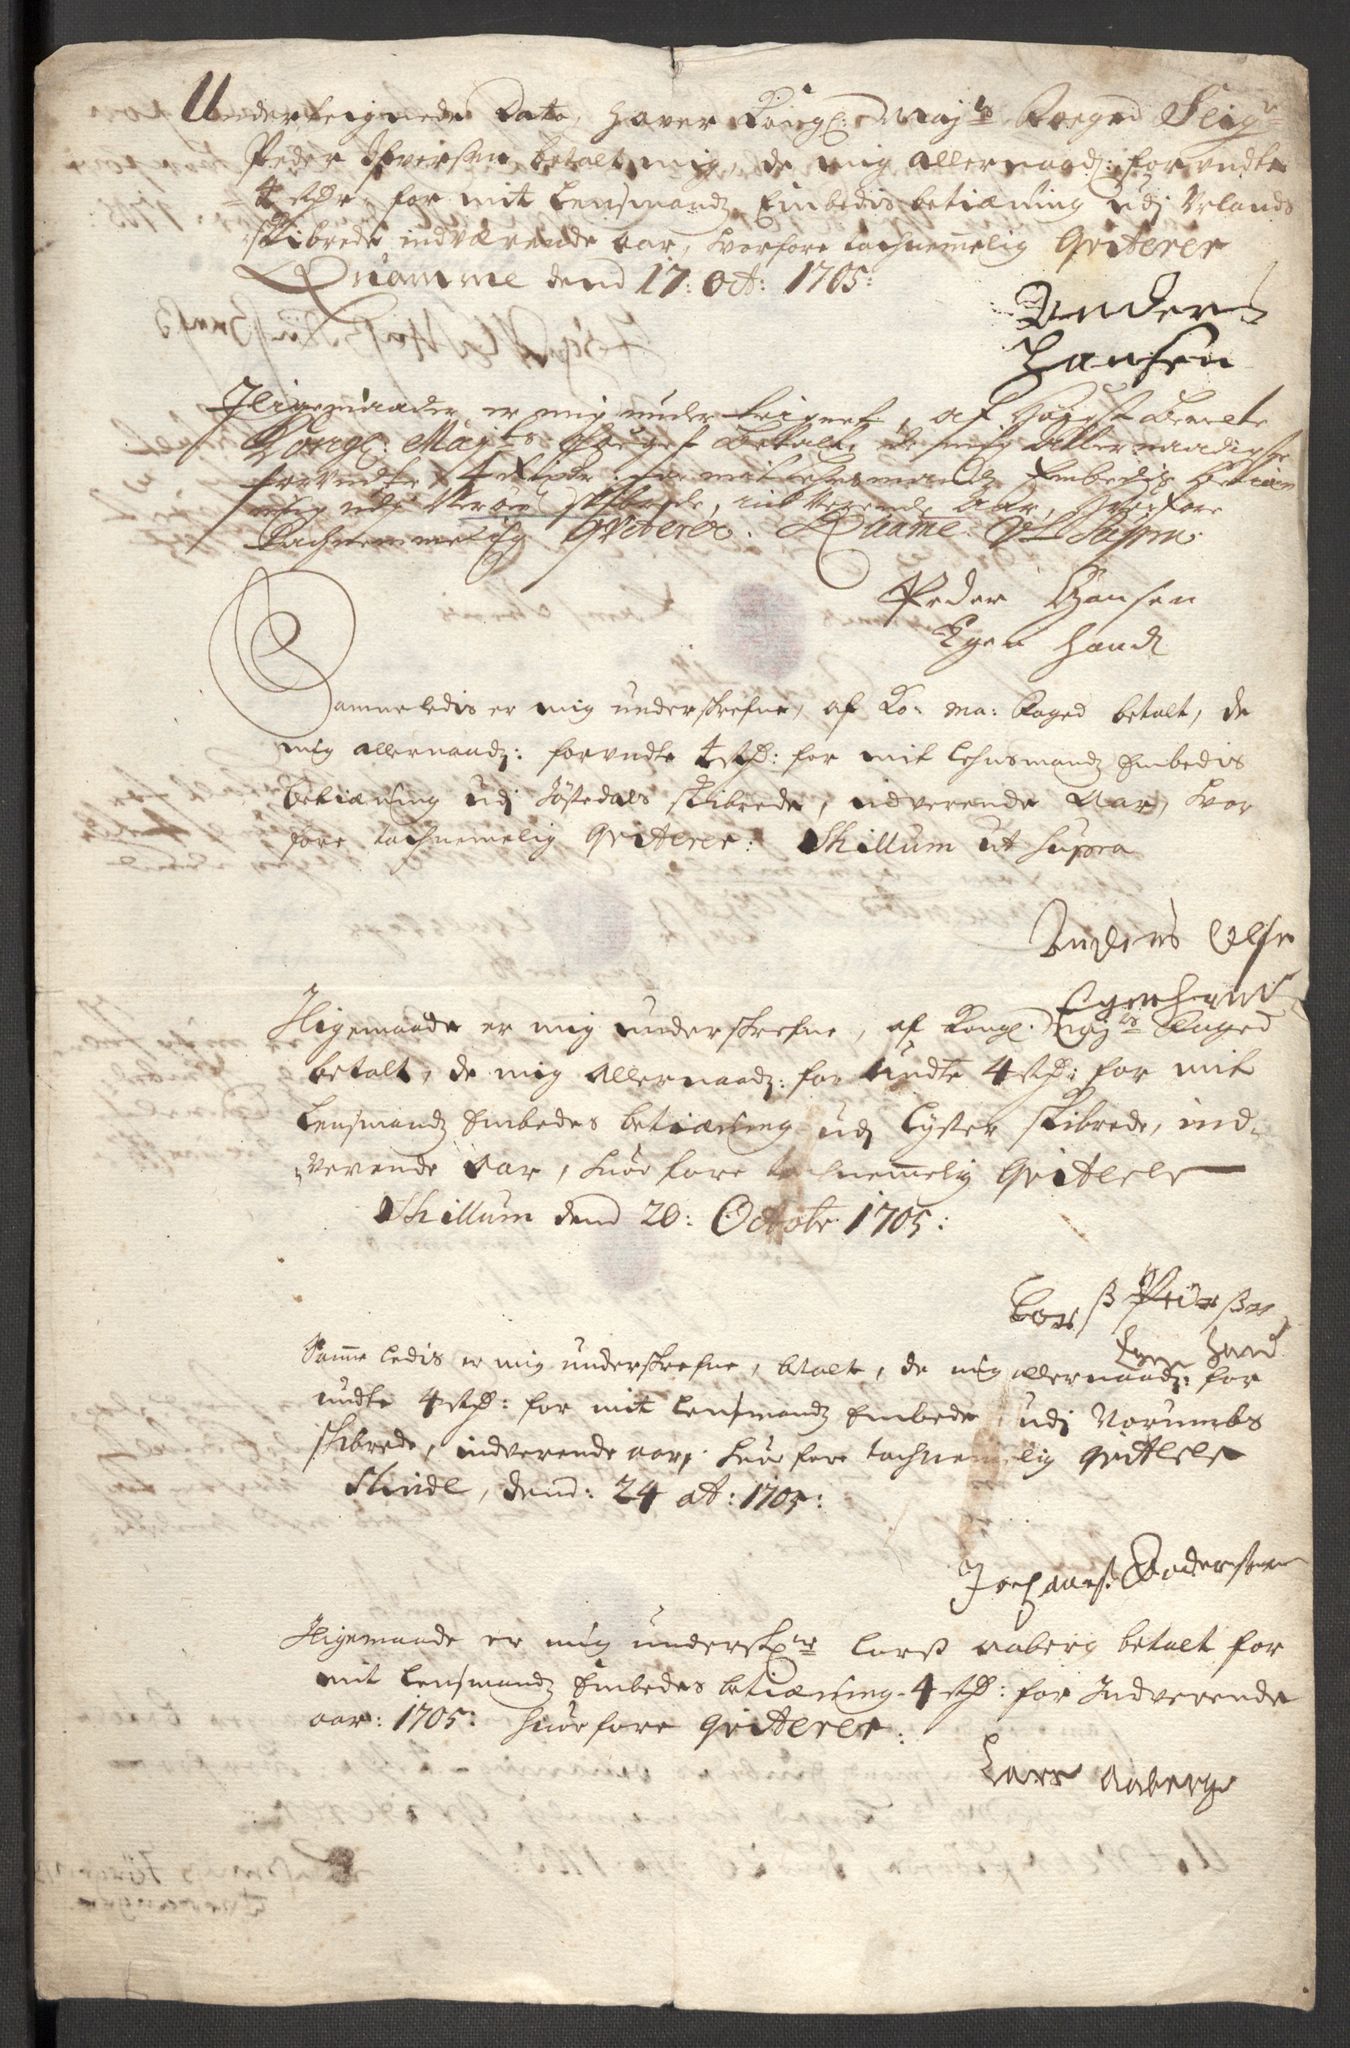 Underteignede Dato, haver Kongl: Mayts Foeged Seigr
Peder Ifversen betalt mig, de mig allernaadz: forundte
4 rdr, for mit Lensmandz Embedis betiæning udj Urlands
skibrede indværende aar, hvorfore tachnemelig Qviterer
Quamme dend 17: Oct: 1705:
Anders
Hansen
Iligemaader er mig under teignet, af Høyst bemelte
Kongl: Mayts: Fouget betalt, de mig Allernaadigste
forundte 4 rixdr: for mit lehnsmandz Embedis betiæ-
ning udj skibrede, indverende Aar, hvorfore
tachnemmelig Qviterer. Quame Ut Supra.
Peder Hansen
Egen Haand
Sammeledis er mig underskrefne, af Ko: Ma: Foged betalt, de
mig allernaadz: forundte 4 rd: for mit Lehnsmandz Embedis
betiæning udj Jostedals skibrede, indverende Aar, hvor
fore tachnemelig Qviterer: Skillum ut supra
Anders Olsen
Egenhand
Iligemaade er mig underskrefne, af Kongl. Mayts Foged
betalt, de mig Allernaadz: for undte 4 rd: for mit
Lensmandz Embedes betiæning udj Lyster skibrede, ind-
verende Aar, huor fore tachnemelig Qviterer
Skillum dend 20: Octobr 1705:
Larß Pederßen
Egen Hand
Samme ledis er mig underskrefne, betalt, de mig allernaadz: for
undte 4 rd: for mit Lensmandz Embede, udj Norumbs
skibrede, indverende aar, huor fore tachnemelig Qviterer
dend: 24 oct: 1705:
Andersen
Iligemaade er mig underskrne Larß Aaberg betalt for
mit Lensmandz Embedes betiæning 4 rd: for Indverende
aar: 1705: huorfore Qviterer:
Lars Aaberge